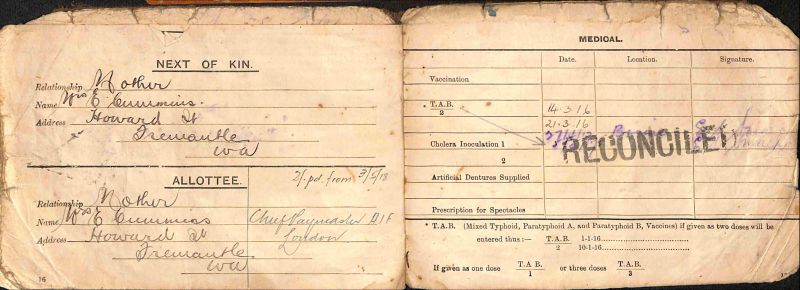 NEXT OF KIN.
Relationship Mother
Name Mrs E Cummins.
Address Howard St
Fremantle
WA
ALLOTTEE.
2/- pd. from 3/5/18
Relationship Mother
Name Mrs E Cummins
Chief Paymaster AIF
Address Howard St
London
Fremantle
WA
16
MEDICAL.
Date. Location. Signature.
Vaccination
* T.A.B. 14.3.16
2 21.3.16
Cholera Inoculation 1
RECONCILED
2
Artificial Dentures Supplied
Prescription for Spectacles
* T.A.B. (Mixed Typhoid, Paratyphoid A, and Paratyphoid B, Vaccines) if given as two doses will be
entered thus:— T.A.B. 1-1-16
2 10-1-16
If given as one dose T.A.B. or three doses T.A.B.
1 3